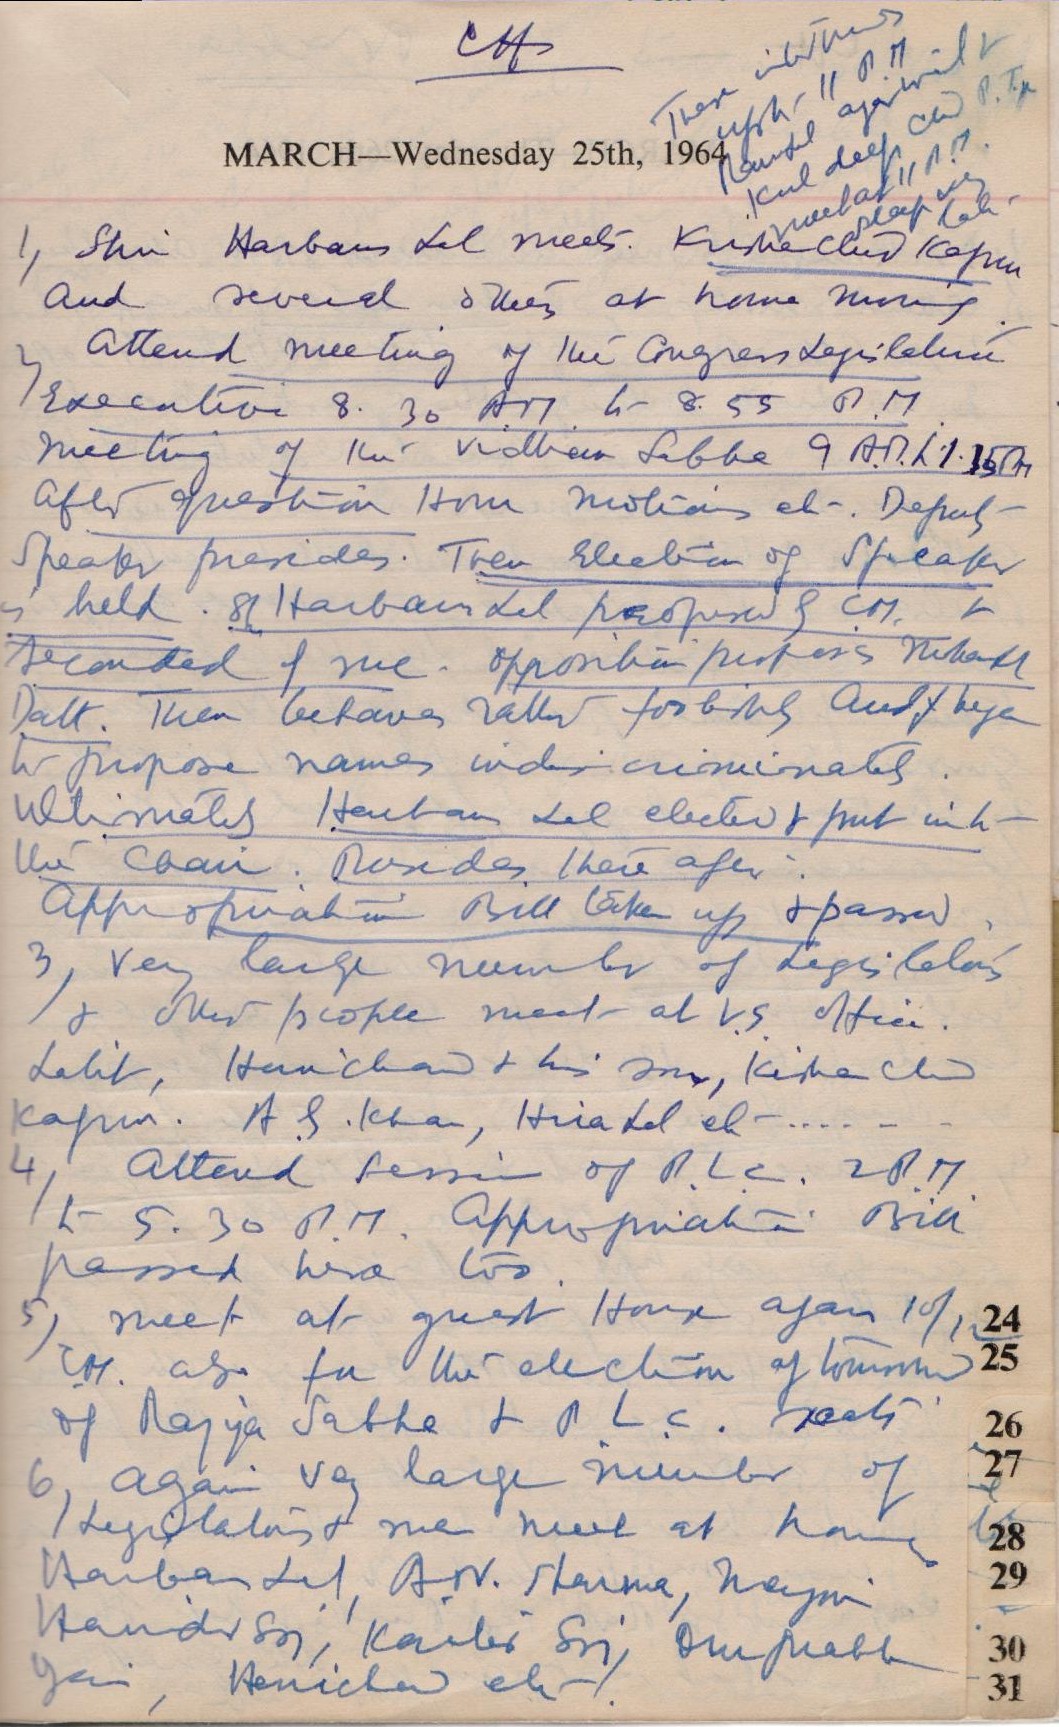 CHs
These interviews
upto 11 P.M
MARCH—Wednesday 25th, 1964
meet at 11 P.M.
sleep very late
1, Shri Harbans Lal meets. Krishan Chand Kapur
and several others at home morning.
2, Attend meeting of the Congress Legislature
Executive 8.30 AM to 8.55 P.M
Meeting of the Vidhan Sabha 9 A.M. to 1.15 PM
After question Hour motions etc. Deputy
Speaker presides. Then Election of Speaker
is held. Sh Harbans Lal proposed by CM. &
seconded by me. Opposition proposes
Datt. Then behaves rather foolishly and began
to propose names indiscriminately.
Ultimately Harbans Lal elected & put into
the Chair. Presides there after.
Appropriation Bill taken up & passed.
3, Very large number of Legislators
& other people meet at V.S office.
Lalit, Harichand & his son, Kishan Chand
Kapur. A.G. Khan, Hira Lal etc ......
4, Attend session of P.L.C. 2 P.M
to 5.30 P.M. Appropriation Bill
passed here too.
5, meet at guest House again
24
CM. also for the election of tomorrow
25
of Rajya Sabha & P.L.C. seats
26
6, Again very large number of
27
Legislators & men meet at home
28
Harbans Lal, A.N. Sharma,
29
Harinder Singh, Kanbir Singh, Om Prabha
30
Jain, Harichand etc.
31